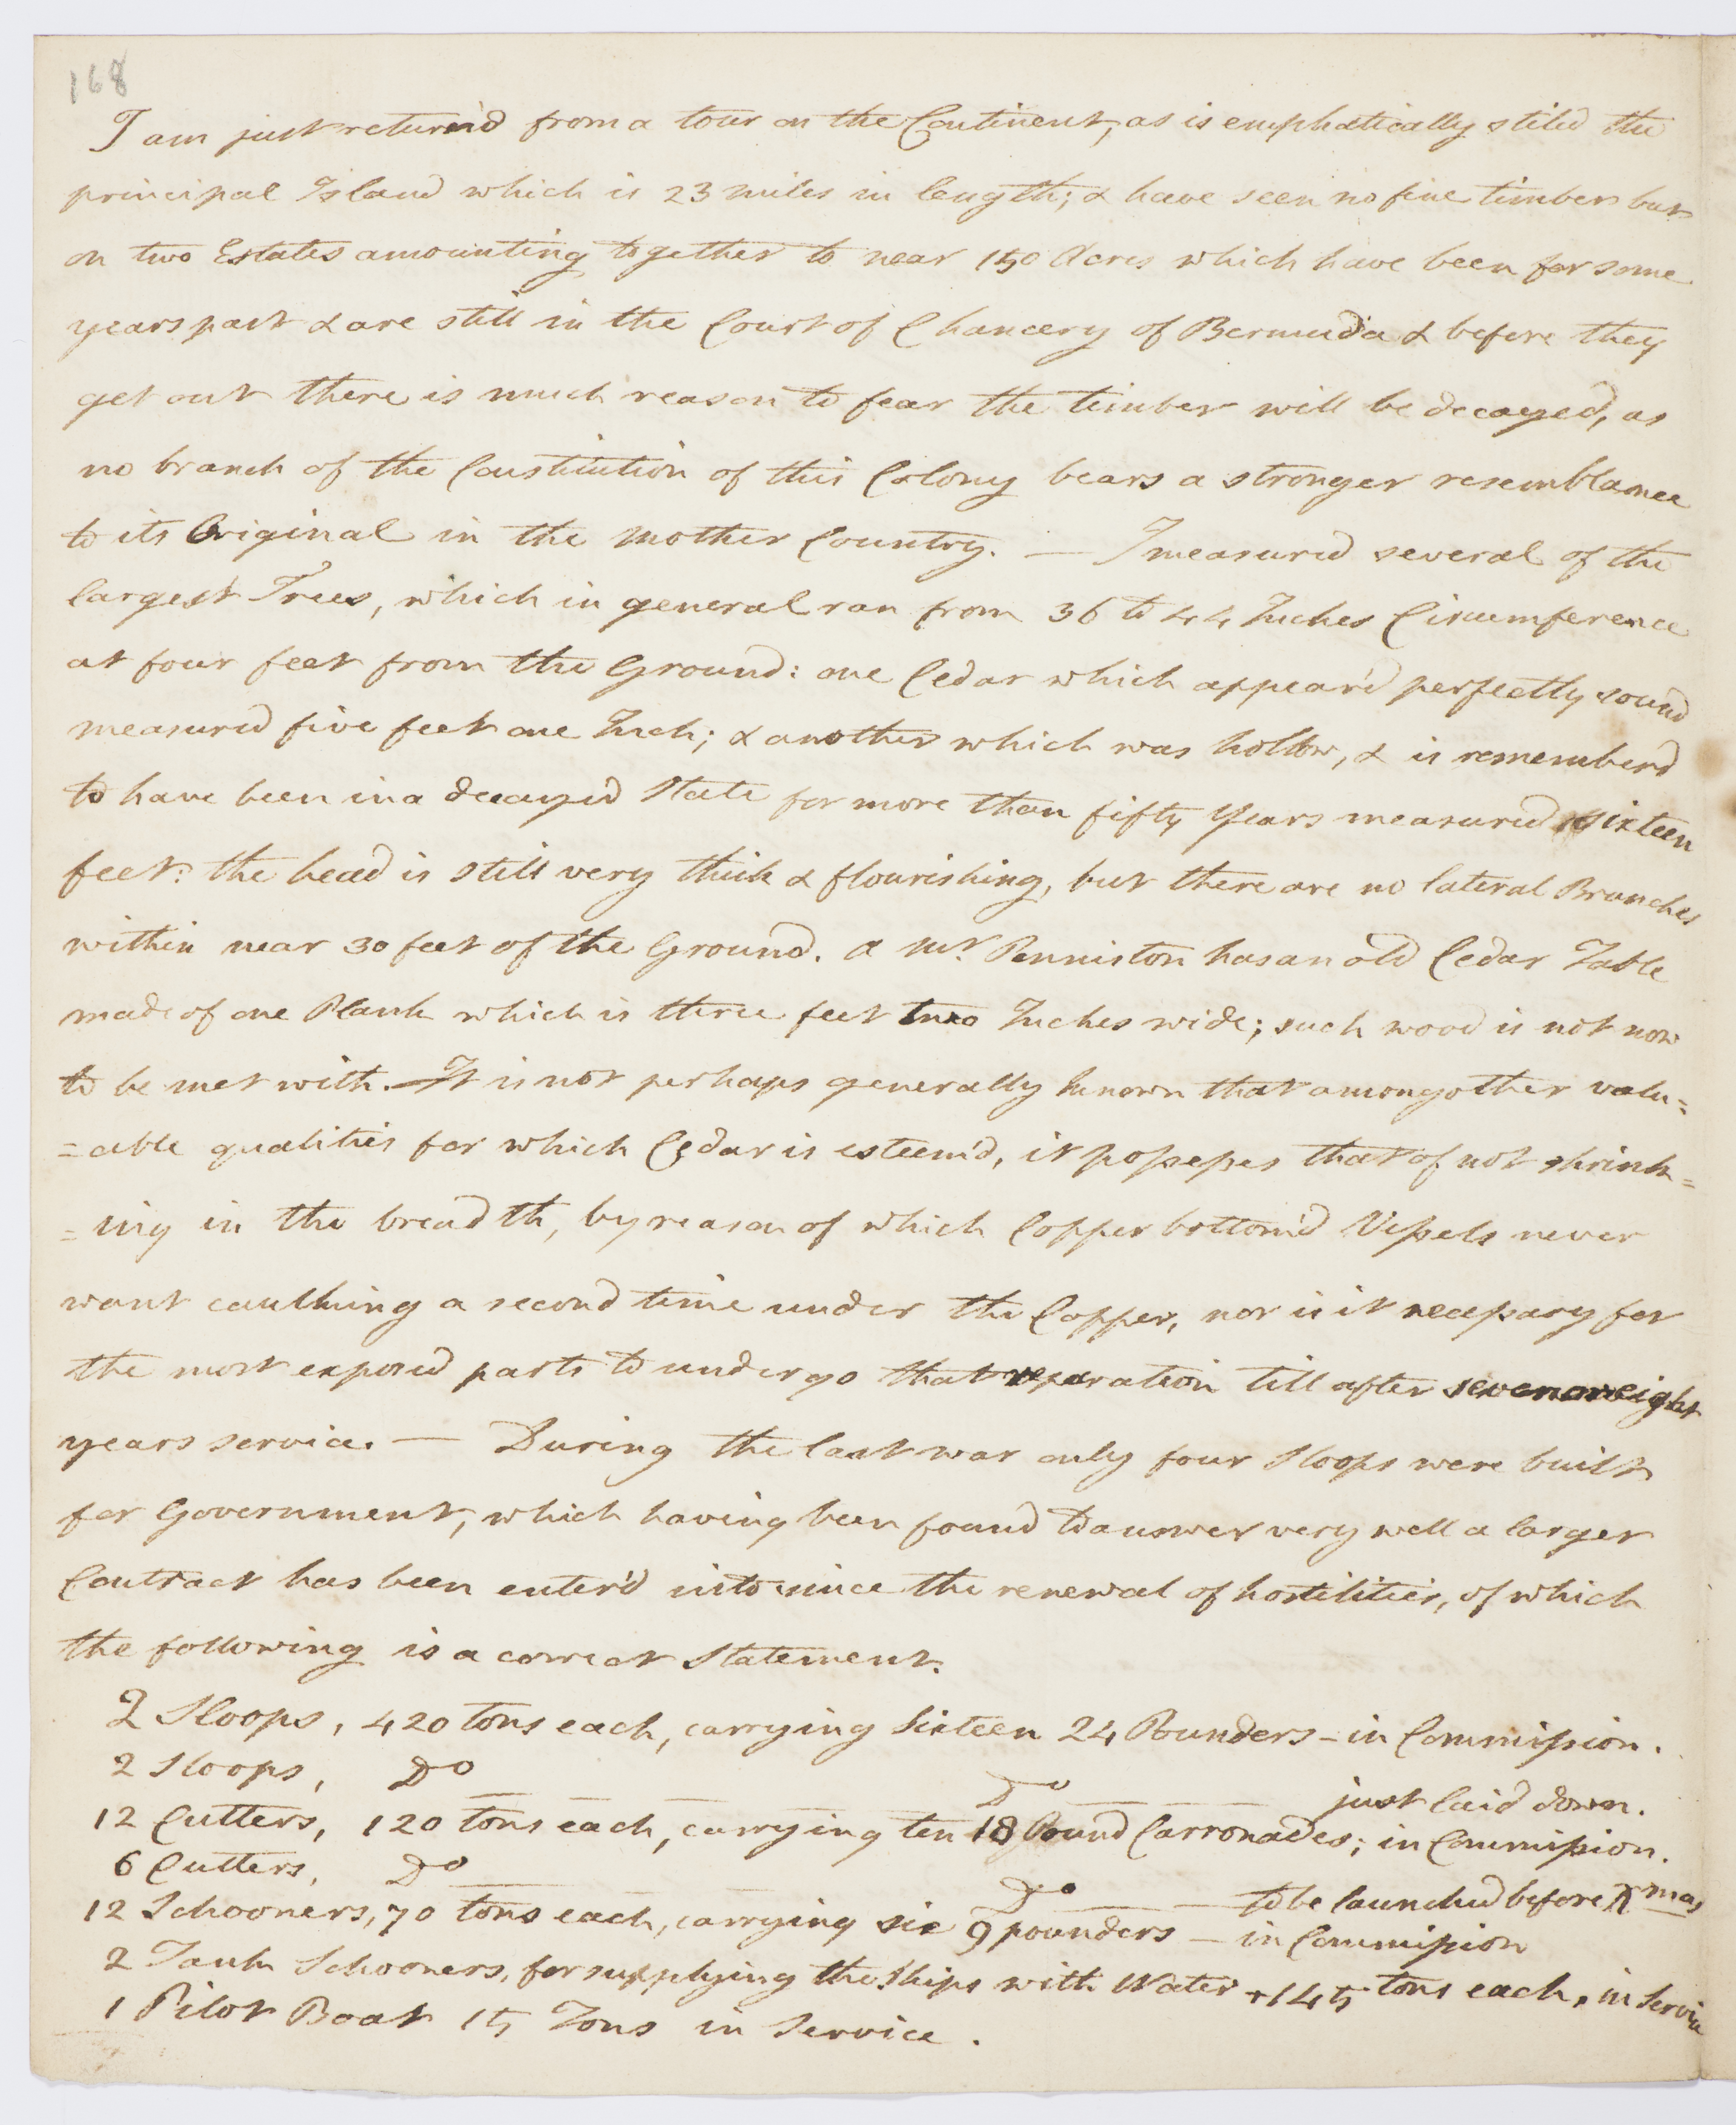 168
I am just return'd from a tour on the Continent, as is emphatically stiled the
principal Island which is 23 miles in length; & have seen no fine timber but
on two Estates amounting together to near 150 Acres which have been for some
years past & are still in the Court of Chancery of Bermuda & before they
get out there is much reason to fear the timber will be decayed, as
no branch of the Constitution of this Colony bears a stronger resemblance
to its Original in the Mother Country. — I measured several of the
largest Trees, which in general ran from 36 to 44 Inches Circumference
at four feet from the Ground: one Cedar which appear'd perfectly sound
measured five feet one Inch; & another which was hollow, & is remember'd
to have been in a decayed State for more than fifty Years measured sixteen
feet: the head is still very thick & flourishing, but there are no lateral Branches
within near 30 feet of the Ground. A Mr. Penniston has an old Cedar Table
made of one Plank which is three feet two Inches wide; such wood is not now
to be met with. — It is not perhaps generally known that among other valu=
=able qualities for which Cedar is esteem'd, it possesses that of not shrink=
=ing in the breadth, by reason of which Copper bottom'd Vessels never
want caulking a second time under the Copper, nor is it necessary for
the most exposed parts to undergo that reparation till after seven or eight
years service. — During the last war only four Sloops were built
for Government, which having been found to answer very well a larger
Contract has been enter'd into since the renewal of hostilities, of which
the following is a correct Statement.
2 Sloops, 420 tons each, carrying Sixteen 24 Pounders – in Commission.
2 Sloops, Do — — — — Do — — — just laid down.
12 Cutters, 120 tons each, carrying ten 18 Pound Carronades; in Commission.
6 Cutters, Do — Do — — to be launched before Xmas
12 Schooners, 70 tons each, carrying six 9 pounders – in Commission
2 Tank Schooners, for supplying the Ships with Water + 145 tons each, in Service
1 Pilot Boat 15 Tons in Service.